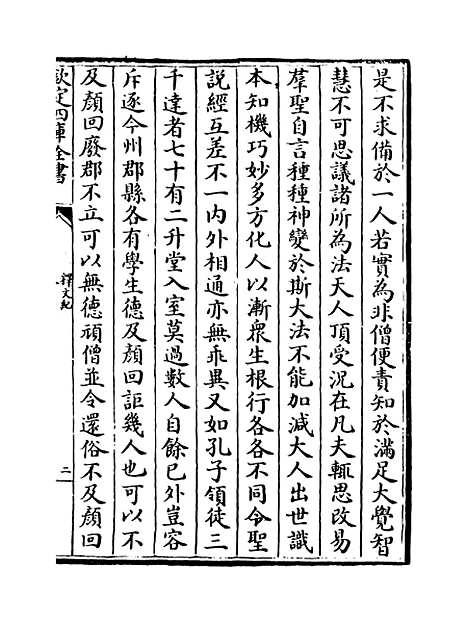 是不求備於一人若實為非僧便責知於滿足大覺智
慧不可思議諸所為法天人頂受況在凡夫輒思改易
羣聖自言種種神變於斯大法不能加減大人出世識
本知機巧妙多方化人以漸衆生根行各各不同令聖
説經互差不一內外相通亦無乖異又如孔子領徒三
千達者七十有二升堂入室莫過數人自餘已外豈容
斥逐今州郡縣各有學生德及顔回詎幾人也可以不
及顔回廢郡不立可以無德頑僧並令還俗不及顔回
欽定四庫全書
釋文紀
二